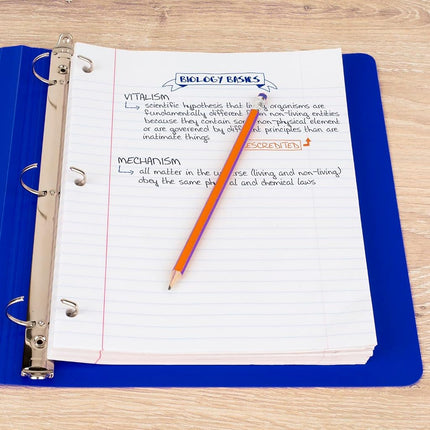 BIOLOGY BASICS
VITALISM
scientific hypothesis that living organisms are
fundamentally different from non-living entities
because they contain some non-physical element
or are goverened by different principles than are
inatimate things.
ESCREDITED
MECHANISM
all matter in the universe (living and non-living)
obey the same physical and chemical laws